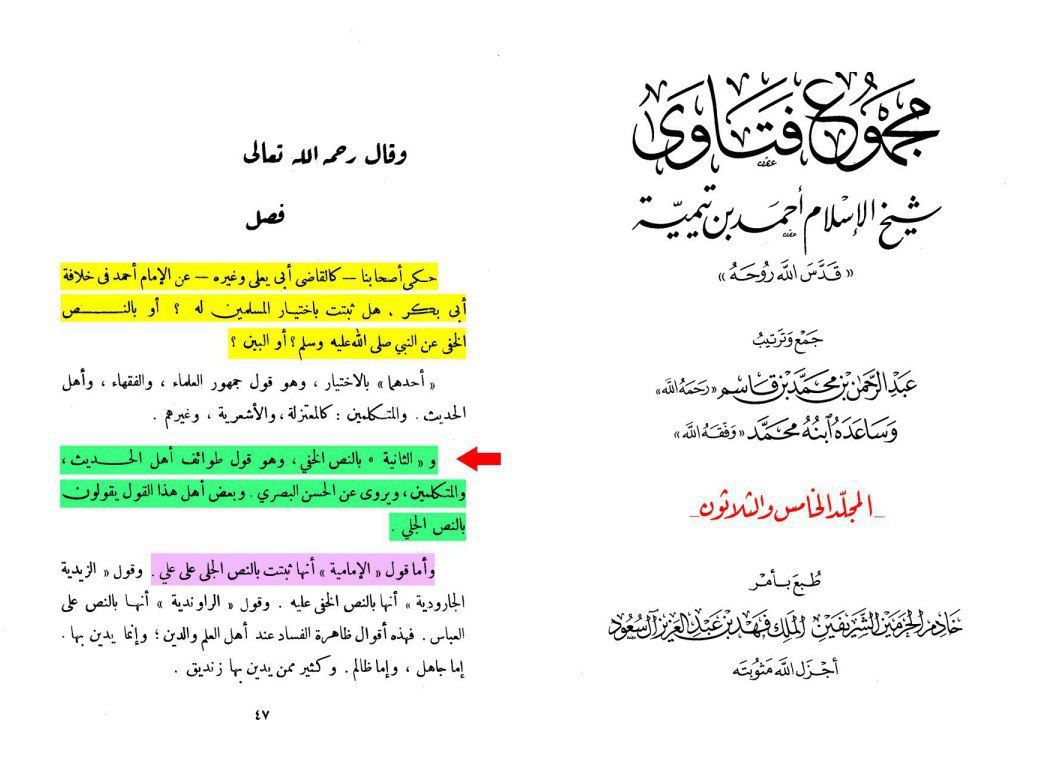 مجموع فتاوى
شيخ الإسلام أحمد بن تيمية
« قَدَّسَ اللَّهُ رُوحَهُ »
جَمْع وَتَرتيبُ
عَبْد الرَّحْمٰن بْن محَمَّد بْن قَاسِم « رَحمَهُ اللَّه »
وَسَاعَدَهُ ابْنُهُ محَمَّد « وَفَّقَهُ اللَّه »
_ المجلّد الخامس والثلاثون _
طُبِعَ بِأمْر
خَادِم الحَرَمَيْن الشَّرِيفَيْن الملِك فَهد بْن عَبْد العَزيز آل سُعُود
أجْزَل اللَّه مَثوبتَه
وقال رحمه الله تعالى
فصل
حكى أصحابنا – كالقاضى أبى يعلى وغيره – عن الإمام أحمد فى خلافة
أبى بكر ، هل ثبتت باختيار المسلمين له ؟ أو بالنص
الخفى عن النبي صلى الله عليه وسلم ؟ أو البين ؟
« أحدهما » بالاختيار ، وهو قول جمهور العلماء ، والفقهاء ، وأهل
الحديث . والمتكلمين : كالمعتزلة ، والأشعرية ، وغيرهم .
و « الثانية » بالنص الخفي ، وهو قول طوائف أهل الحديث ،
والمتكلمين ، ويروى عن الحسن البصري . وبعض أهل هذا القول يقولون
بالنص الجلي .
وأما قول « الإمامية » أنها ثبتت بالنص الجلى على علي . وقول « الزيدية
الجارودية » أنها بالنص الخفى عليه . وقول « الراوندية » أنها بالنص على
العباس . فهذه أقوال ظاهرة الفساد عند أهل العلم والدين ؛ وإنما يدين بها .
إما جاهل ، وإما ظالم . وكثير ممن يدين بها زنديق .
٤٧